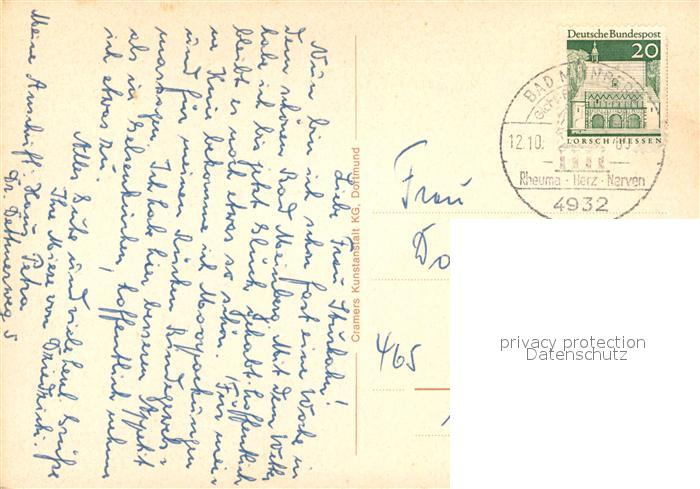 Liebe Frau Stuckehr!
Nun bin ich schon fast eine Woche in
dem schönen Bad Meinberg. Mit dem Wetter
habe ich bis jetzt Glück gehabt. Hoffentlich
bleibt es noch etwas so schön. Für meine
Knie bekomme ich Moorpackungen
und für meinen Rücken Bindegewebs-
massagen. Ich habe hier besseren Appetit
als in Gelsenkirchen, hoffentlich nehme
ich etwas zu.
Alles Gute und viele herzl. Grüße
Ihre Miese von Driedrich.
Meine Anschrift: Haus Petra
Dr. Dettmerweg 5
Cramers Kunstanstalt KG, Dortmund
Frau
Do
465
Deutsche Bundespost
20
LORSCH/HESSEN
BAD MEINBERG
12.10.
Rheuma · Herz · Nerven
4932
privacy protection
Datenschutz